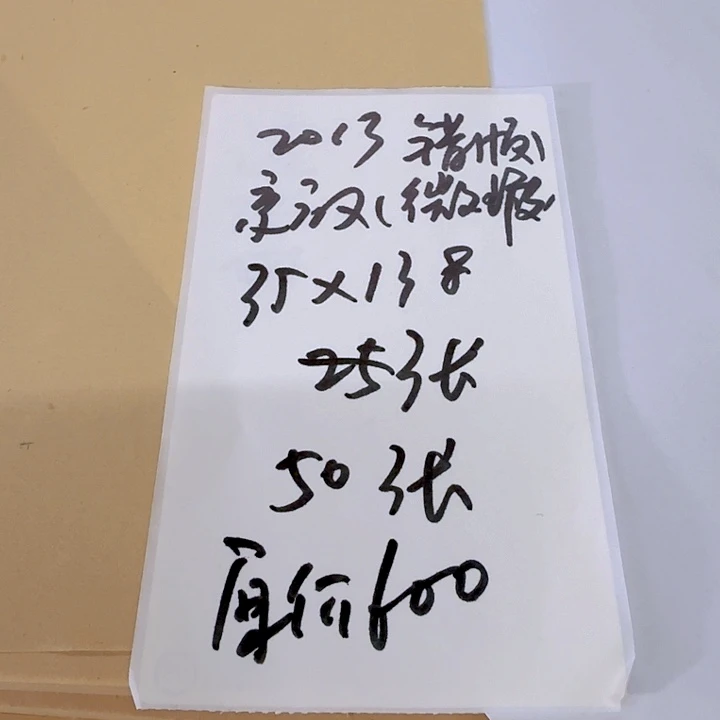 2013 精版
京汉(微疲
35×138
25张
50张
原价600